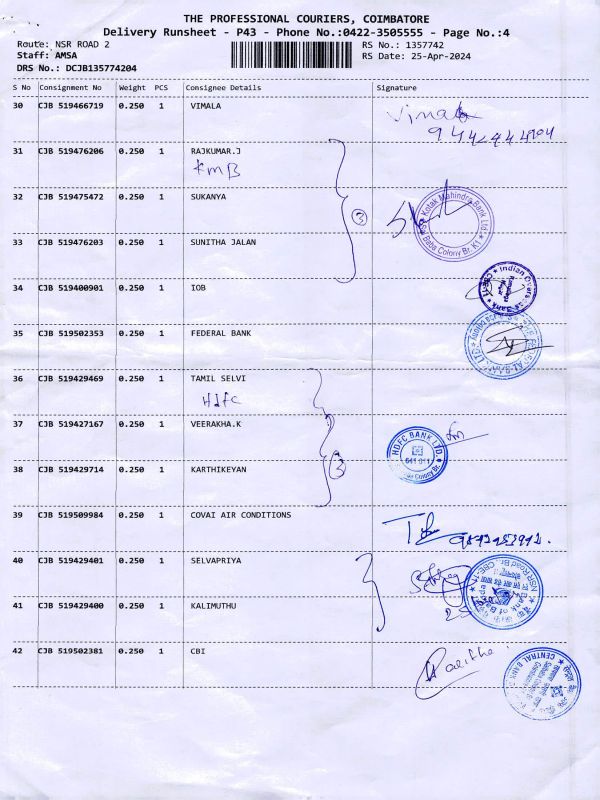 THE PROFESSIONAL COURIERS, COIMBATORE
Delivery Runsheet - P43 - Phone No.:0422-3505555 - Page No.:4
Route: NSR ROAD 2 RS No.: 1357742
Staff: AMSA RS Date: 25-Apr-2024
DRS No.: DCJB135774204
S No Consignment No Weight PCS Consignee Details Signature
30 CJB 519466719 0.250 1 VIMALA Vimala
31 CJB 519476206 0.250 1 RAJKUMAR.J
KMB
32 CJB 519475472 0.250 1 SUKANYA
3
Kotak Mahindra Bank Ltd.
Baba Colony Br.
33 CJB 519476203 0.250 1 SUNITHA JALAN
34 CJB 519400901 0.250 1 IOB
Indian Overseas Bank
35 CJB 519502353 0.250 1 FEDERAL BANK
36 CJB 519429469 0.250 1 TAMIL SELVI
Hdfc
37 CJB 519427167 0.250 1 VEERAKHA.K
HDFC BANK LTD.
641 011
Colony Br.
38 CJB 519429714 0.250 1 KARTHIKEYAN
3
39 CJB 519509984 0.250 1 COVAI AIR CONDITIONS
40 CJB 519429401 0.250 1 SELVAPRIYA
NSR Road Br. CBE-11
Bank of
41 CJB 519429400 0.250 1 KALIMUTHU
42 CJB 519502381 0.250 1 CBI
CENTRAL BANK